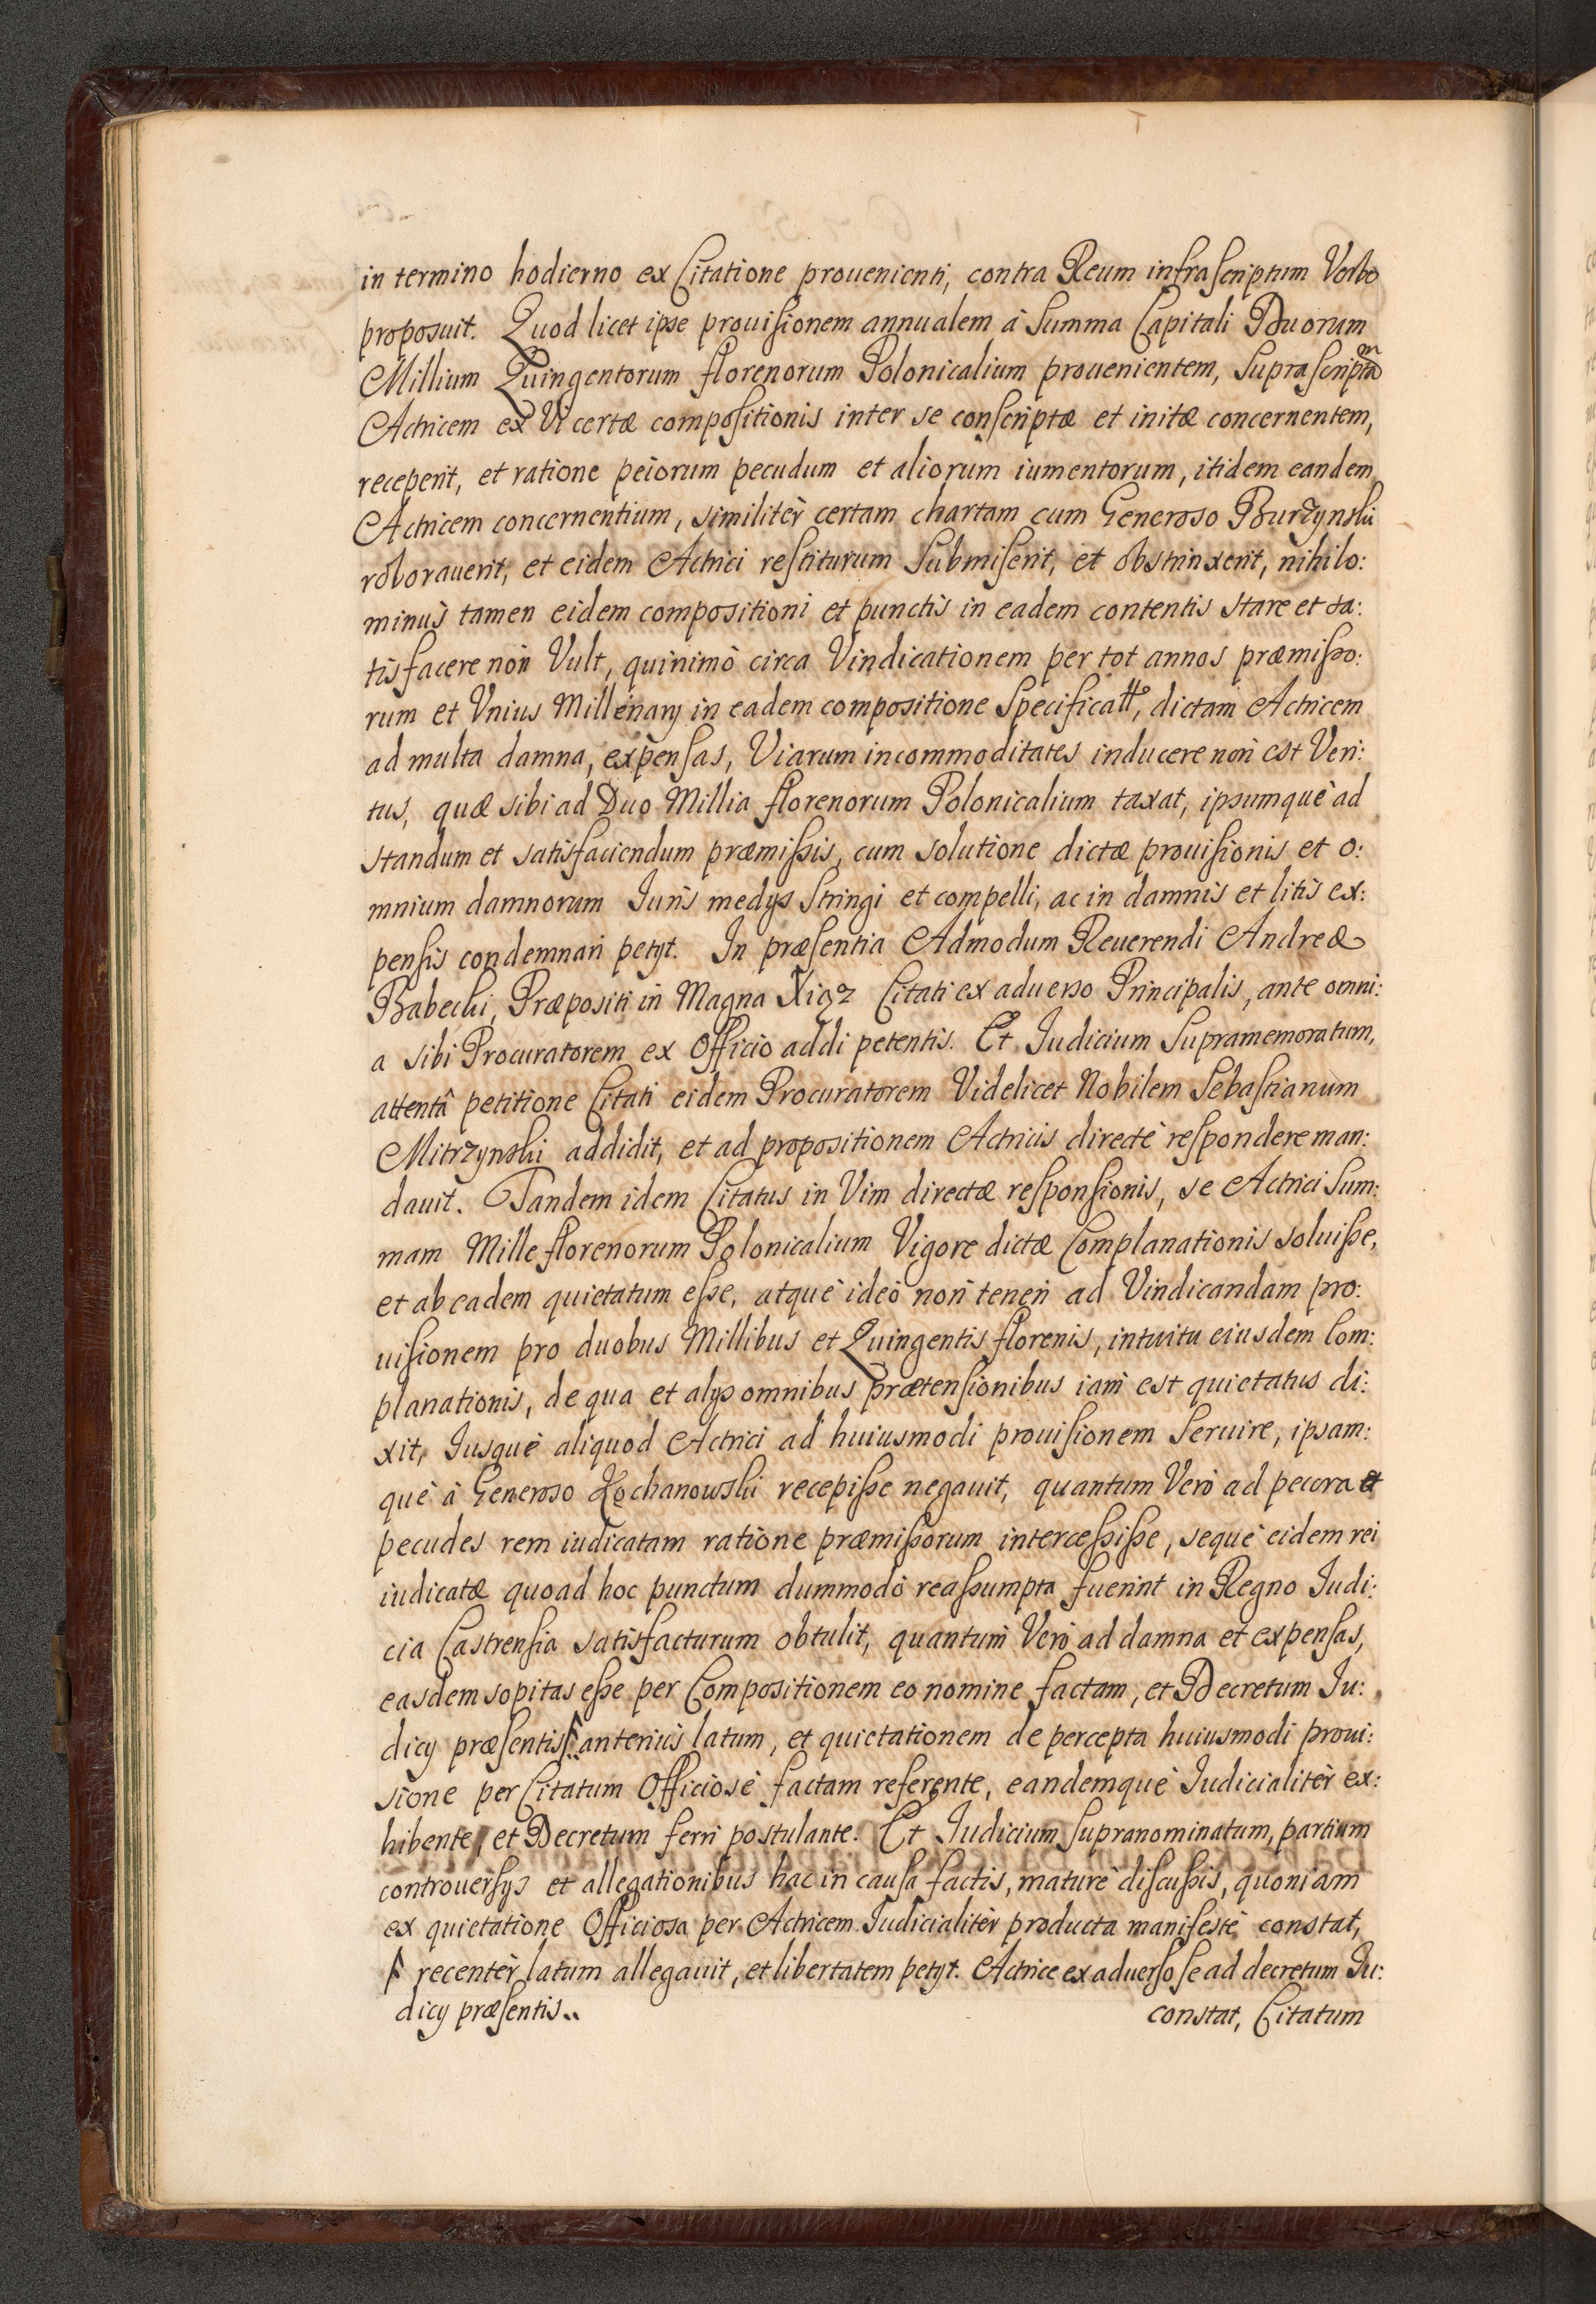 in termino hodierno ex Citatione prouenienti, contra Reum infrascriptum Verbo
proposuit. Quod licet ipse prouisionem annualem à Summa Capitali Duorum
Millium Quingentorum florenorum Polonicalium prouenientem, Suprascriptam
Actricem ex Vi certæ compositionis inter se conscriptæ et initæ concernentem,
receperit, et ratione peiorum pecudum et aliorum iumentorum, itidem eandem
Actricem concernentium, similitèr certam chartam cum Generoso Burzynski
roborauerit, et eidem Actrici restiturum Submiserit, et obstrinxerit, nihilo:
minùs tamen eidem compositioni et punctis in eadem contentis stare et sa:
tisfacere non Vult, quinimò circa Vindicationem per tot annos præmisso:
rum et Vnius Millenarij in eadem compositione Specificatt°, dictam Actricem
ad multa damna, expensas, Viarum incommoditates inducere non est Veri:
tus, quæ sibi ad Duo Millia florenorum Polonicalium taxat, ipsumquè ad
standum et satisfaciendum præmissis, cum solutione dictæ prouisionis et o:
mnium damnorum Iuris medijs Stringi et compelli, ac in damnis et litis ex:
pensis condemnari petijt. In præsentia Admodum Reuerendi Andreæ
Babecki, Præpositi in Magna Xiąz Citati ex aduerso Principalis, ante omni:
a sibi Procuratorem ex Officio addi petentis. Et Iudicium Supramemoratum,
attentâ petitione Citati eidem Procuratorem Videlicet Nobilem Sebastianum
Mitrzynski addidit, et ad propositionem Actricis directè respondere man:
dauit. Tandem idem Citatus in Vim directæ responsionis, se Actrici Sum:
mam Mille florenorum Polonicalium Vigore dictæ Complanationis soluisse,
et ab eadem quietatum esse, atquè ideò non teneri ad Vindicandam pro:
uisionem pro duobus Millibus et Quingentis florenis, intuitu eiusdem Com:
planationis, de qua et alijs omnibus prætensionibus iam est quietatus di:
xit, Iusquè aliquod Actrici ad huiusmodi prouisionem Seruire, ipsam:
què à Generoso Kochanowski recepisse negauit, quantum Verò ad pecora et
pecudes rem iudicatam ratione præmissorum intercessisse, sequè eidem rei
iudicatæ quoad hoc punctum dummodò reassumpta fuerint in Regno Iudi:
cia Castrensia satisfacturum obtulit, quantum Verò ad damna et expensas,
easdem sopitas esse per Compositionem eo nomine factam, et Decretum Iu:
dicij præsentis anteriùs latum, et quietationem de percepta huiusmodi proui:
sione per Citatum Officiosè factam referente, eandemquè Iudicialitèr ex:
hibente, et Decretum ferri postulante. Et Iudicium Supranominatum, partium
controuersijs et allegationibus hac in causa factis, maturè discussis, quoniam
ex quietatione Officiosa per Actricem Iudicialitèr producta manifestè constat,
recentèr latum allegauit, et libertatem petijt. Actrice ex aduerso se ad decretum Iu:
dicij præsentis..
constat, Citatum